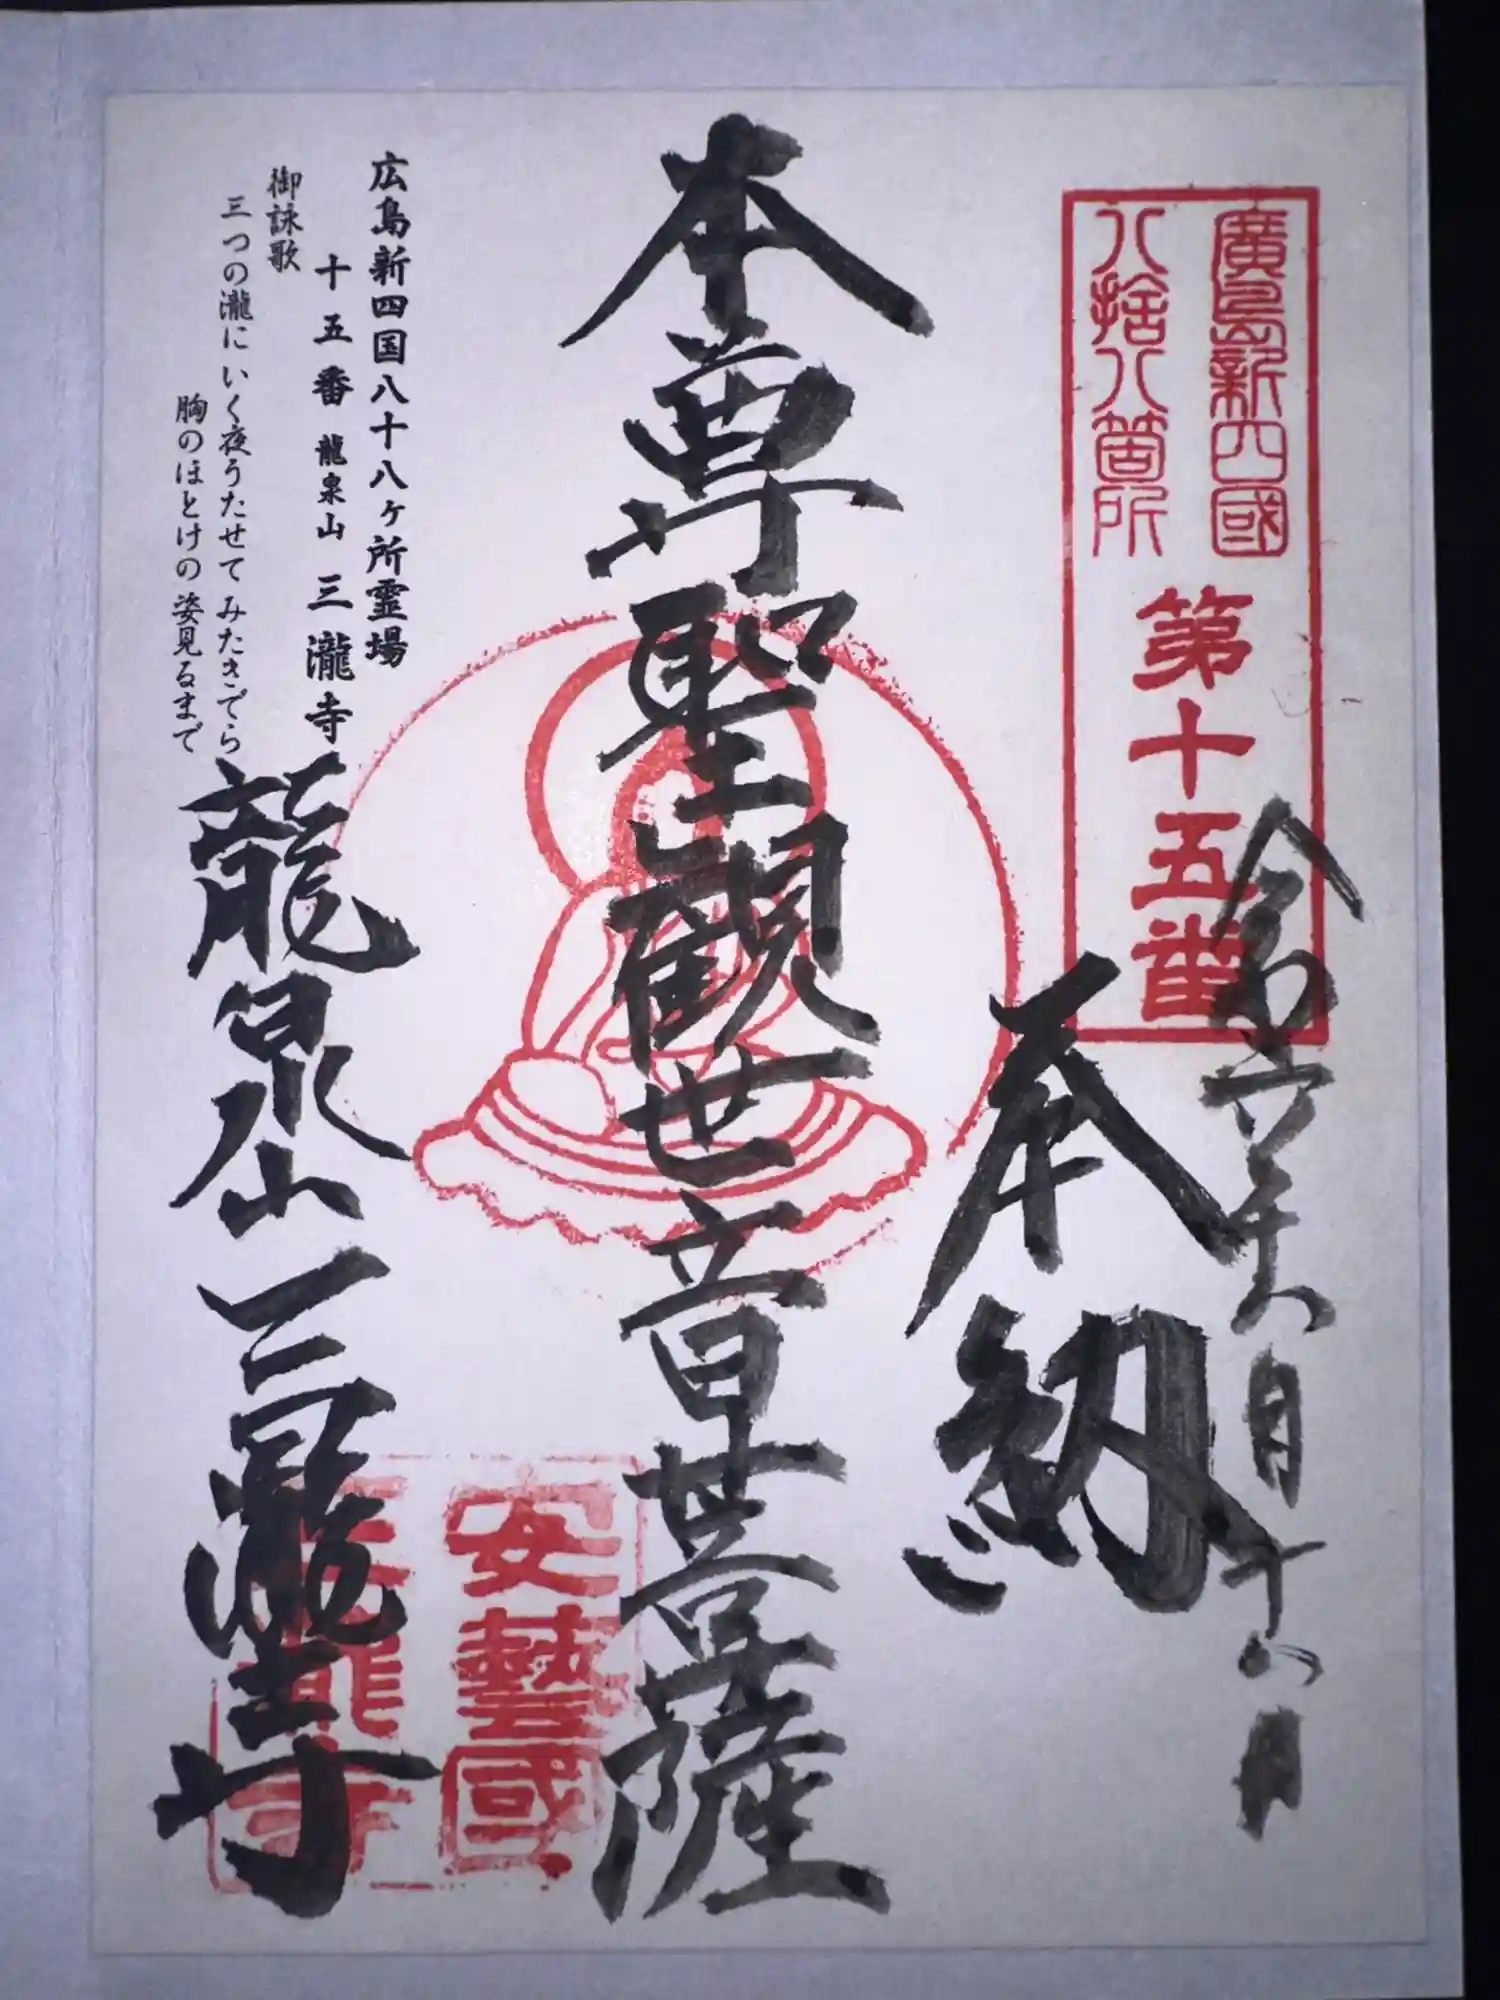 廣島新四國
八拾八箇所
第十五番
奉納
本尊聖観世音菩薩
広島新四国八十八ヶ所霊場
十五番 龍泉山 三瀧寺
御詠歌
三つの瀧にいく夜うたせてみたきでら
胸のほとけの姿見るまで
龍泉山 三瀧寺
安藝國
三瀧寺